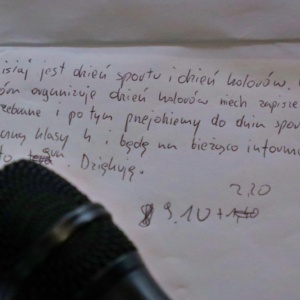 isiaj jest dzień sportu i dzień kolorów.
organizuje dzień kolorów niech zapisze
i po tym przejdziemy do dnia spo
klasy 4 i będę na bieżąco inform
to. Dziękuję.
2.10
9.10+